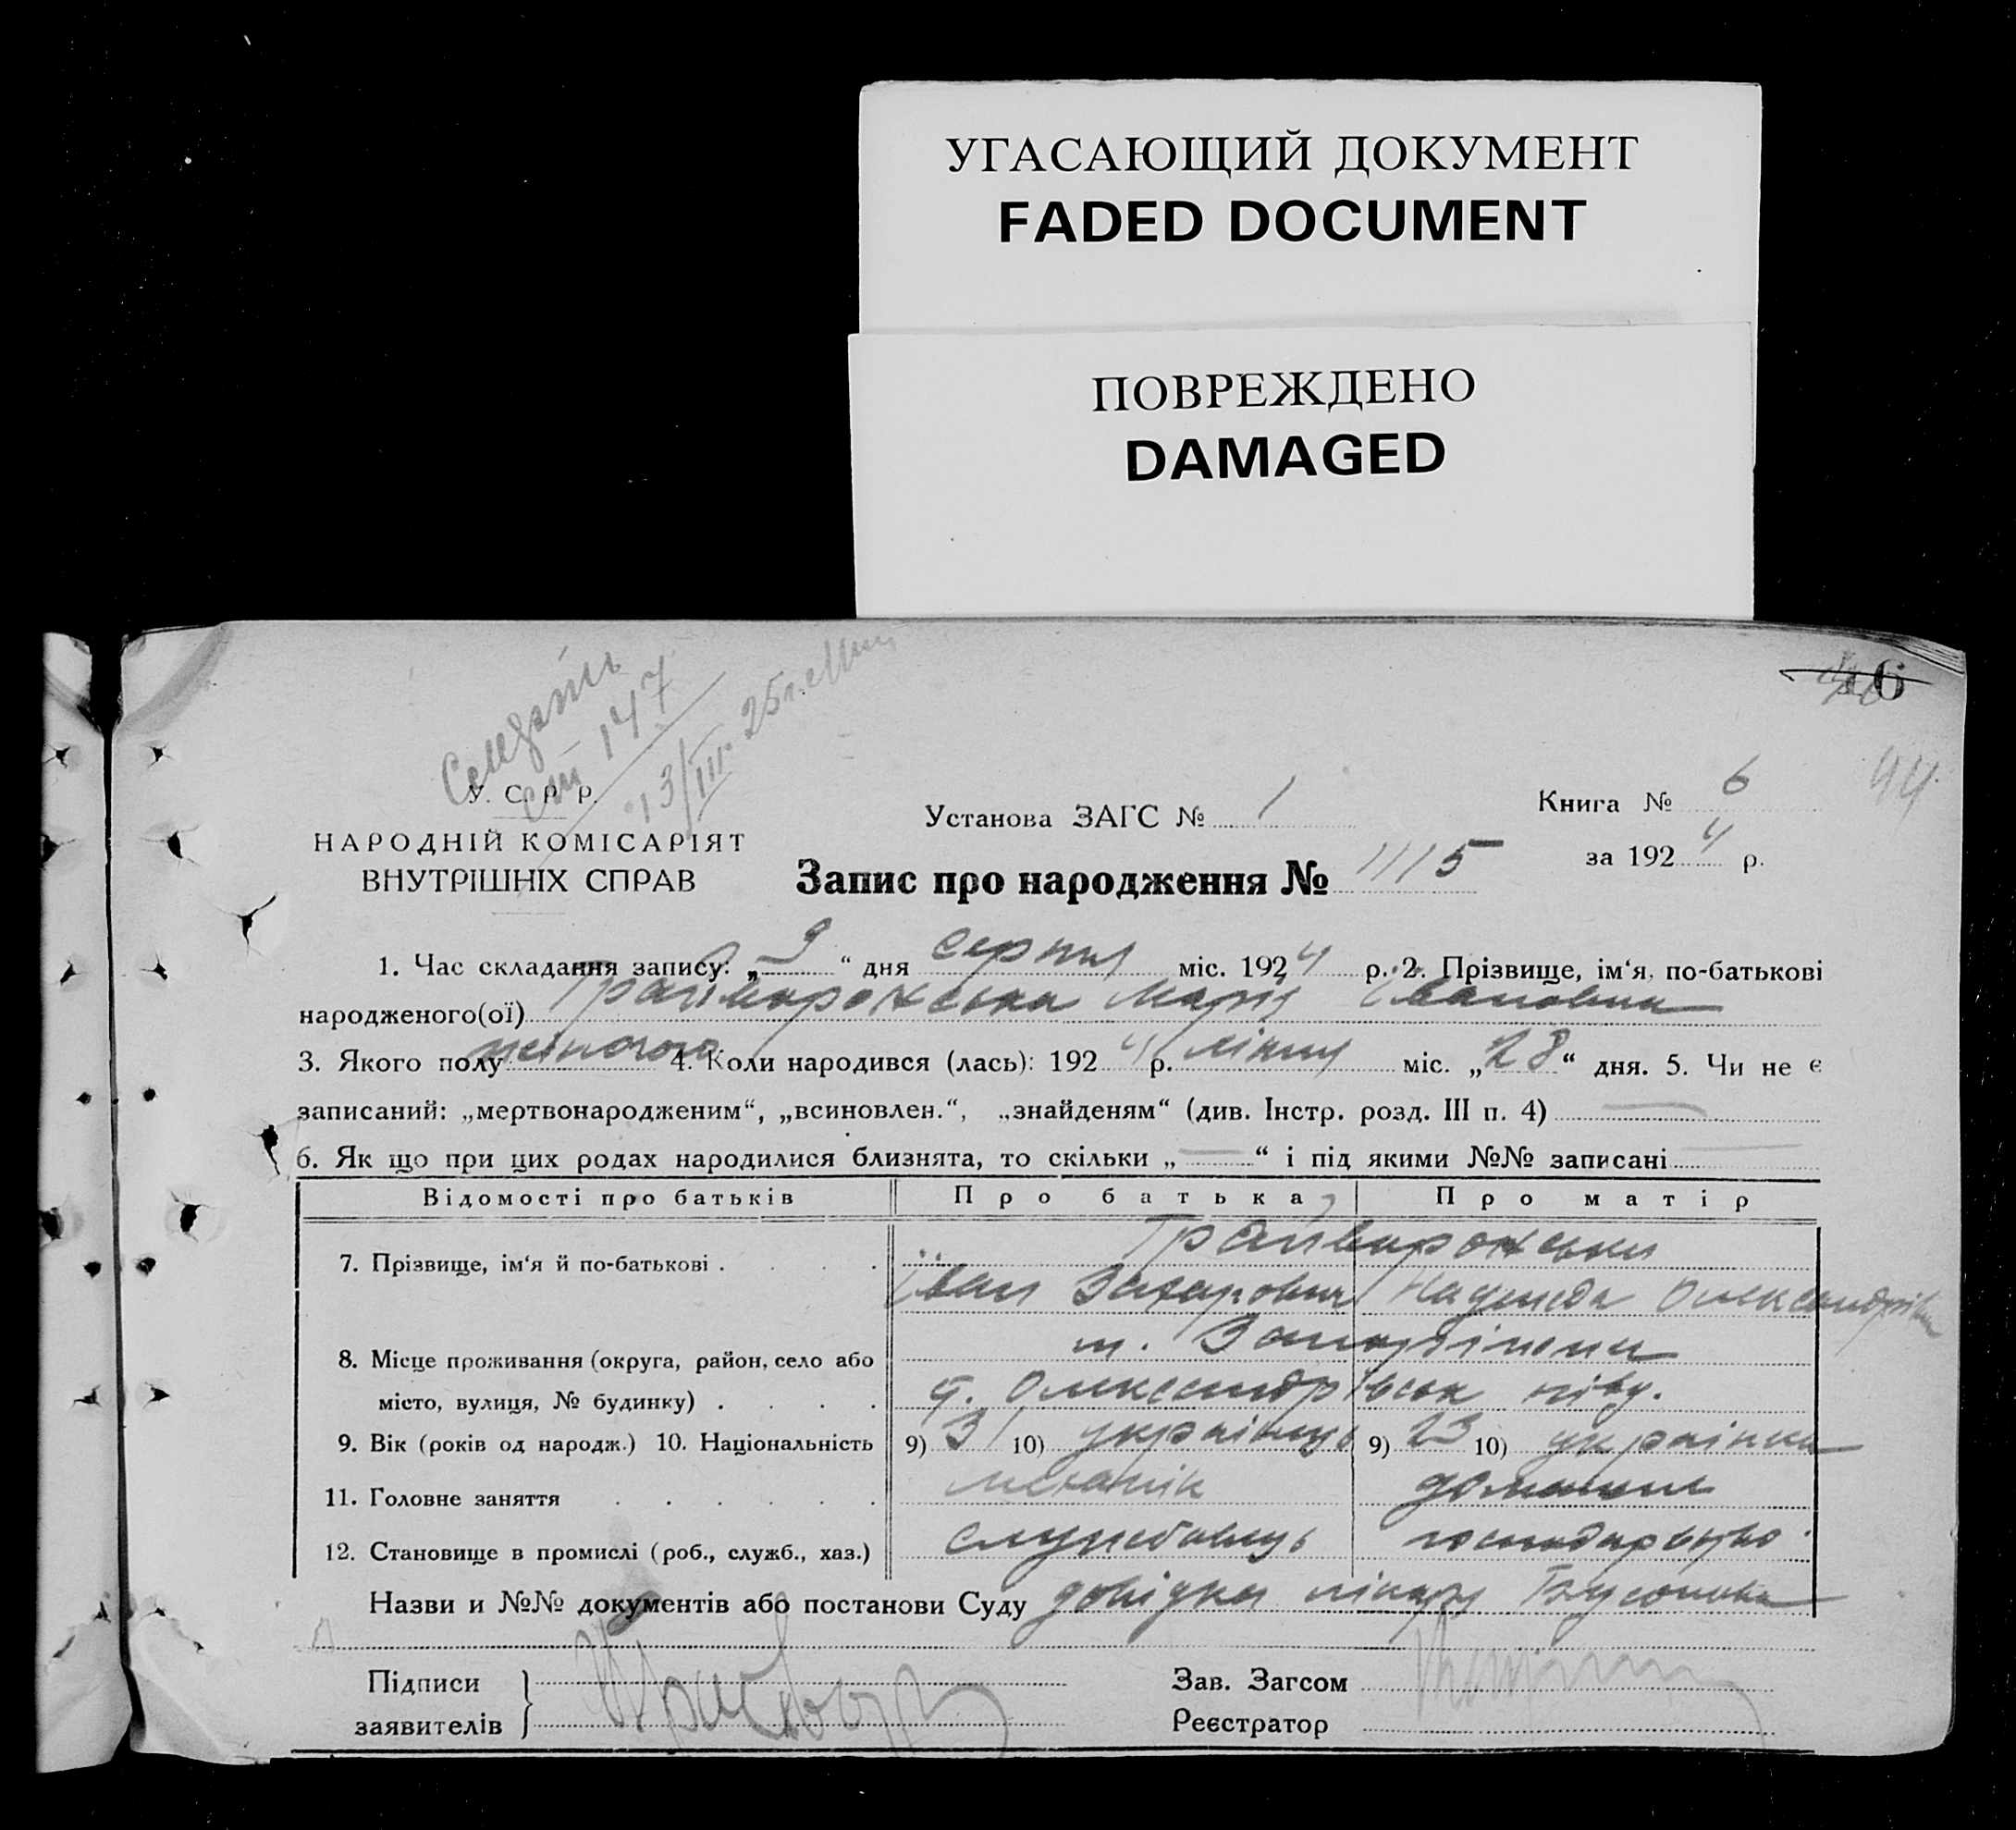 УГАСАЮЩИЙ ДОКУМЕНТ
FADED DOCUMENT
ПОВРЕЖДЕНО
DAMAGED
6
147
13/III 25 г.
44
У. С. Р. Р.
НАРОДНІЙ КОМІСАРІЯТ
ВНУТРІШНІХ СПРАВ
Установа ЗАГС № 1
Книга № 6
за 1924 р.
Запис про народження № 1115
1. Час складання запису: „ 9 “ дня серпня міс. 1924 р. 2. Прізвище, ім‘я, по-батькові
народженого(ої) Грайворонська Марія Івановна
3. Якого полу жіночого 4. Коли народився (лась): 1924 р. липня міс. „ 28 “ дня. 5. Чи не є
записаний: „мертвонародженим“, „всиновлен.“, „знайденям“ (див. Інстр. розд. III п. 4)
6. Як що при цих родах народилися близнята, то скільки „ — “ і під якими №№ записані
Відомості про батьків Про батька Про матір
7. Прізвище, ім‘я й по-батькові . . . . Грайворонськи
Іван Захарович Надежда Олександрівна
8. Місце проживання (округа, район, село або м. Запоріжжя
місто, вулиця, № будинку) . . . . Олександрівськ півд.
9. Вік (років од народж.) 10. Національність 9) 31 10) українець 9) 23 10) українка
11. Головне заняття . . . . . . механік домашнє
12. Становище в промислі (роб., служб., хаз.) службовець господарство
Назви и №№ документів або постанови Суду довідка лікаря
Підписи
заявителів
Зав. Загсом
Реєстратор